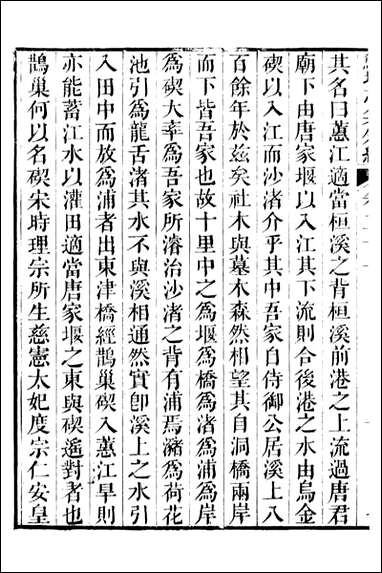 其名曰蕙江適當桓溪之背桓溪前港之上流過唐君
廟下由唐家堰以入江其下流則合後港之水由烏金
碶以入江而沙渚介乎其中吾家自侍御公居溪上入
百餘年於兹矣社木與墓木森然相望其自洞橋兩岸
而下皆吾家也故十里中之爲堰爲橋爲渚爲浦爲岸
爲碶大率爲吾家所濬治沙渚之背有浦焉瀦爲荷花
池引爲龍舌渚其水不與溪相通然實卽溪上之水引
入田中而放爲浦者出東津橋經鵲巢碶入蕙江旱則
亦能蓄江水以灌田適當唐家堰之東與碶遙對者也
鵲巢何以名碶宋時理宗所生慈憲太妃度宗仁安皇